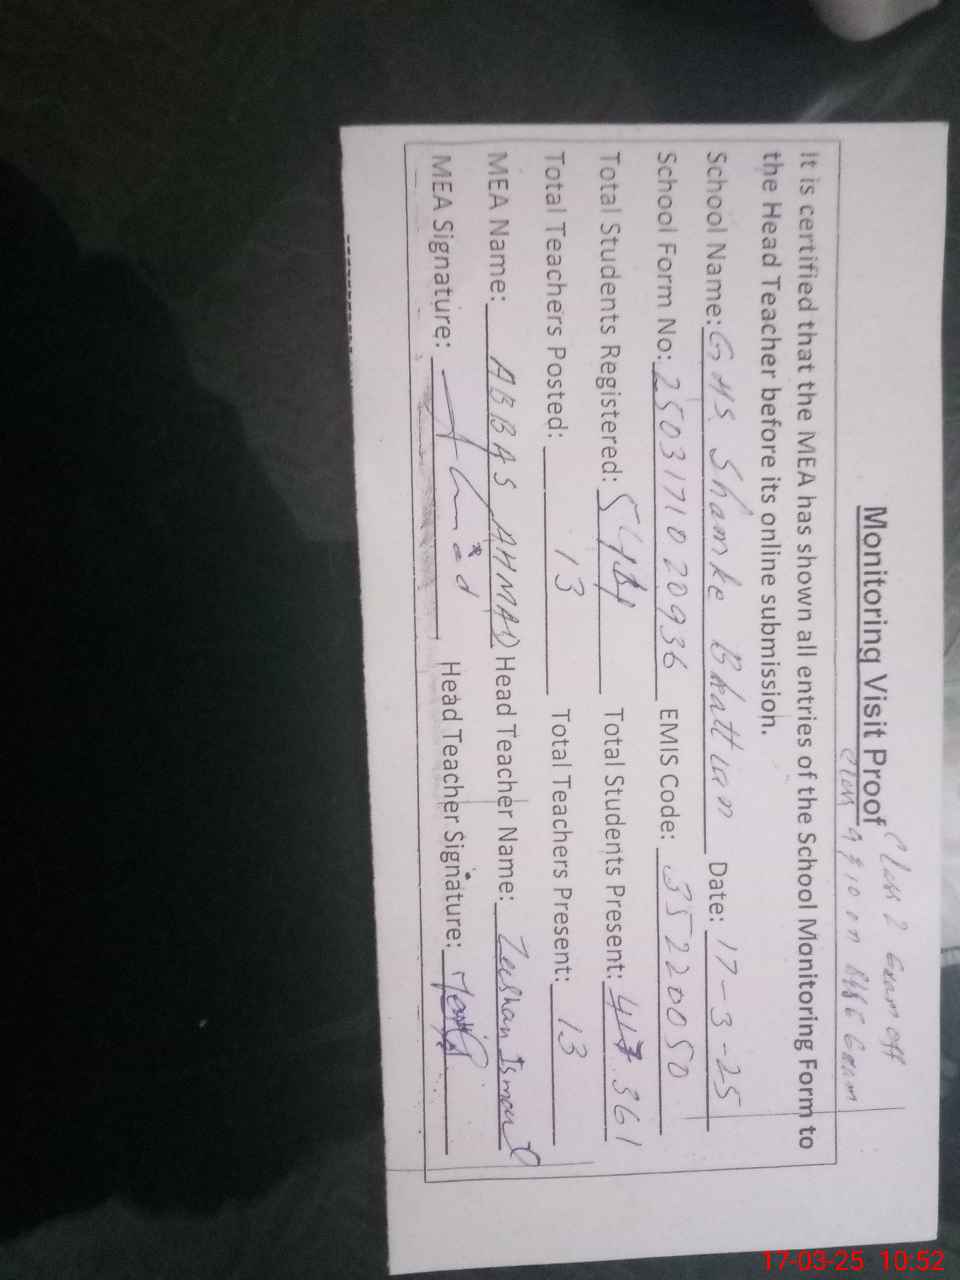 Class 2 Exam off
Monitoring Visit Proof
Class 9 & 10 on BISE Exam
It is certified that the MEA has shown all entries of the School Monitoring Form to
the Head Teacher before its online submission.
School Name: GHS Shamke Bhattian Date: 17-3-25
School Form No: 2503171020936 EMIS Code: 35220050
Total Students Registered: Total Students Present: 361
Total Teachers Posted: 13 Total Teachers Present: 13
MEA Name: ABBAS AHMAD Head Teacher Name: Zeeshan
MEA Signature: Head Teacher Signature:
17-03-25 10:52